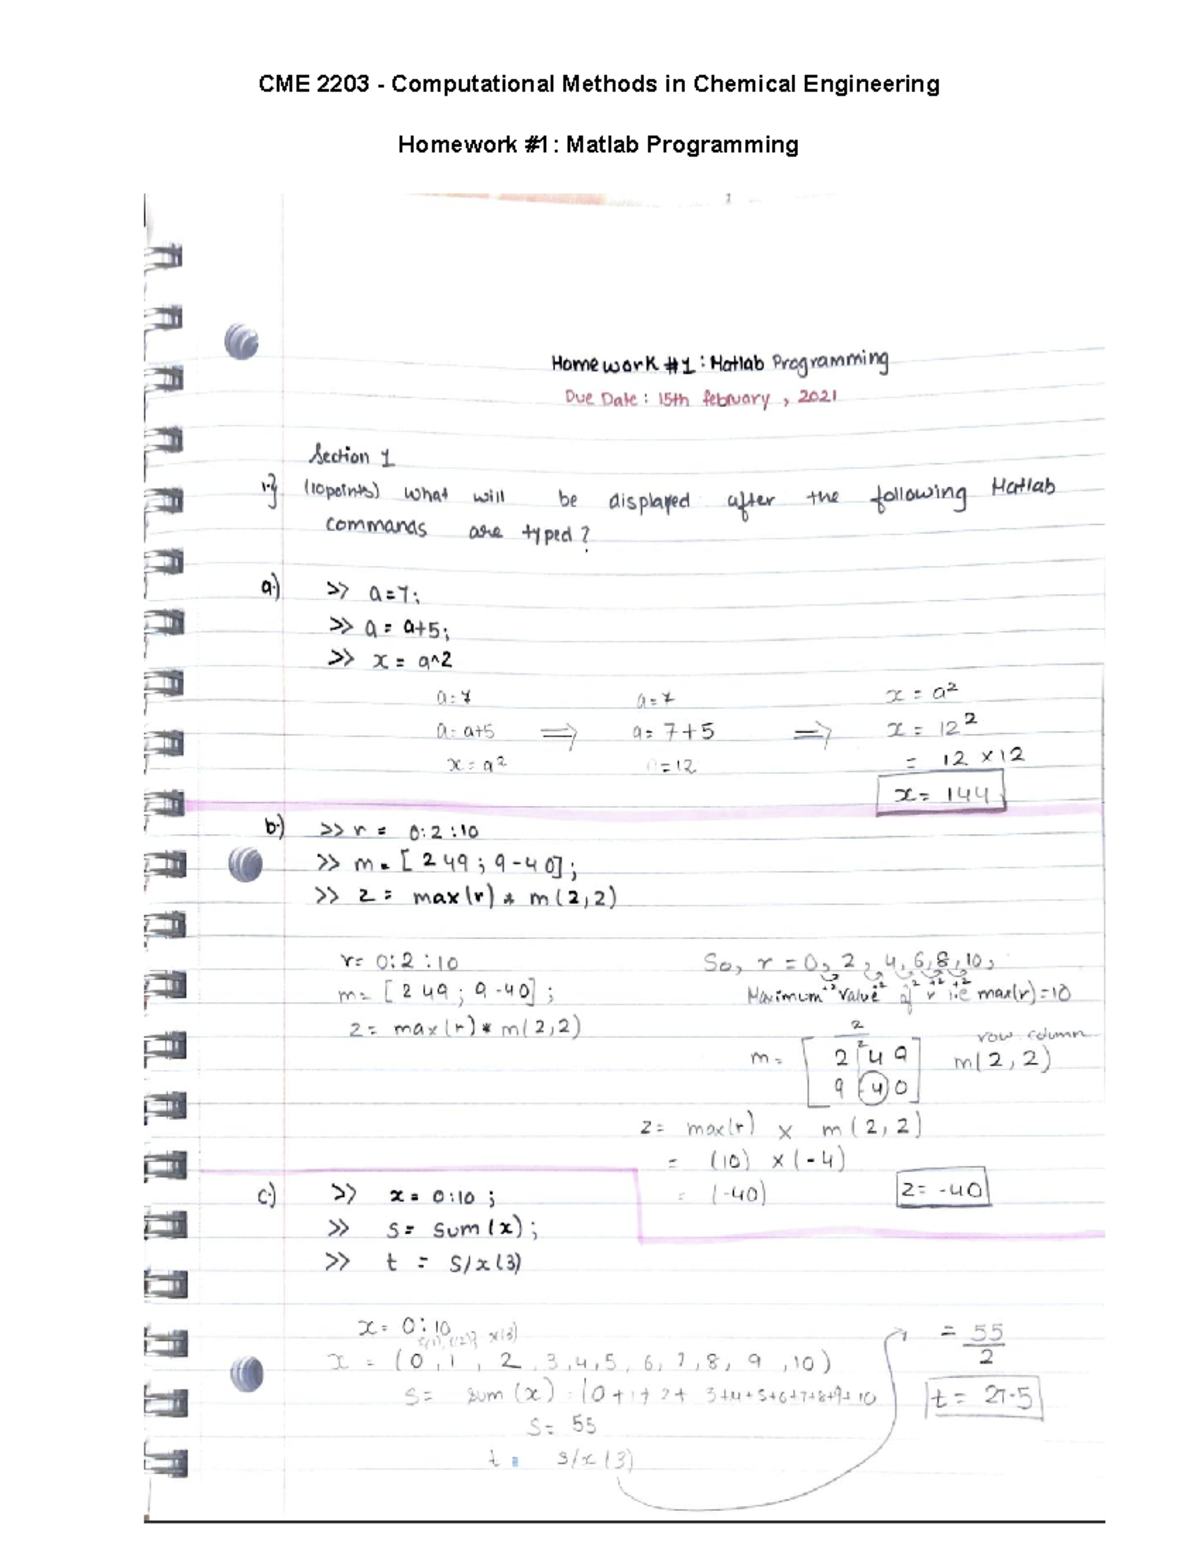 CME 2203 - Computational Methods in Chemical Engineering
Homework #1: Matlab Programming
Homework #1: Matlab Programming
Due Date: 15th february, 2021
Section 1
1.) (10points) What will be displayed after the following Matlab
commands are typed?
a.) >> a=7;
>> a = a+5;
>> x = a^2
a=7
a=a+5
x=a²
⇒
a=7
a=7+5
a=12
⇒
x = a²
x = 12²
= 12 × 12
x = 144
b.) >> r = 0:2:10
>> m = [2 4 9; 9 -4 0];
>> z = max(r) * m(2,2)
r= 0:2:10
m= [2 4 9; 9 -4 0];
z= max(r) * m(2,2)
So, r = 0, 2, 4, 6, 8, 10,
+2 +2 +2 +2 +2
Maximum value of r i.e max(r)=10
2
2
row column
m= [2 4 9
9 -4 0]
m(2,2)
z= max(r) × m(2,2)
= (10) × (-4)
= (-40)
z= -40
c.) >> x = 0:10;
>> s= sum(x);
>> t = s/x(3)
x= 0:10
x(1), x(2), x(3)
x = (0, 1, 2, 3, 4, 5, 6, 7, 8, 9, 10)
s= sum(x) = (0+1+2+3+4+5+6+7+8+9+10
s= 55
t = s/x(3)
= 55
2
t = 27.5